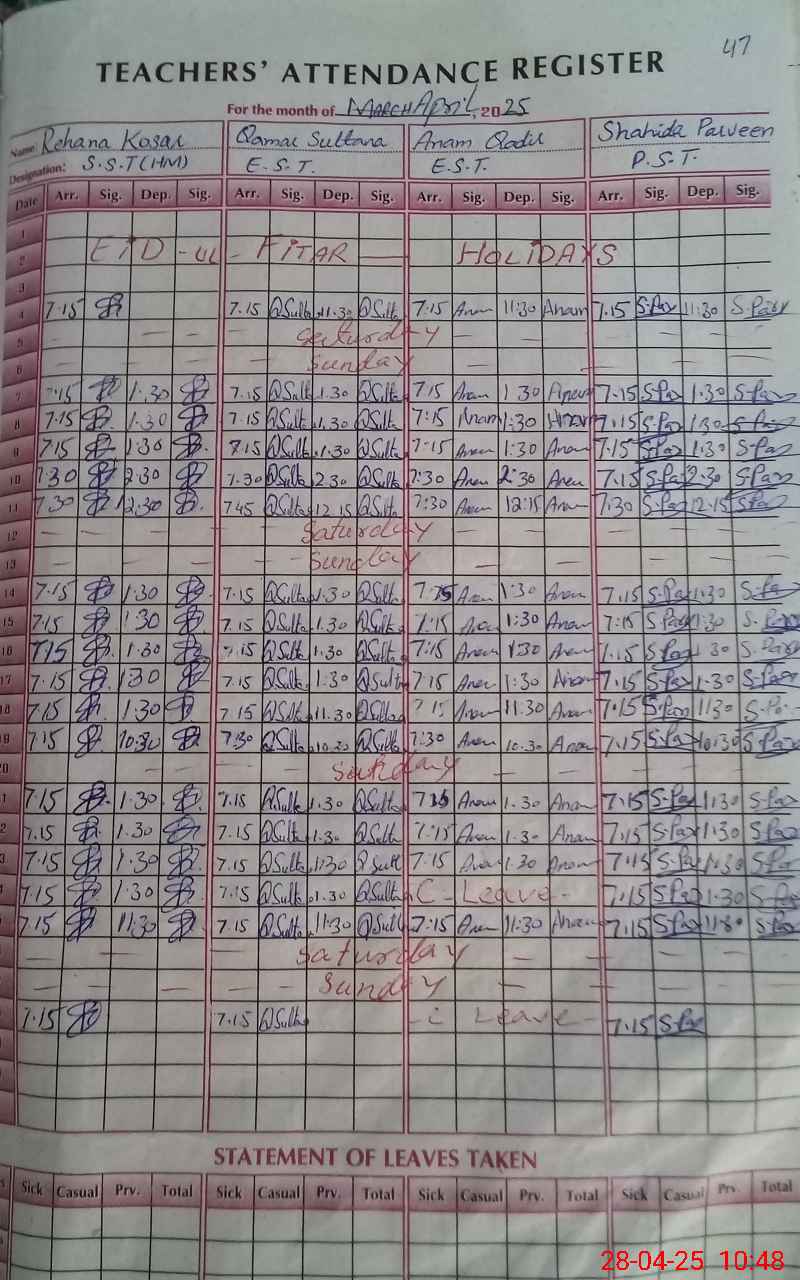 47
TEACHERS' ATTENDANCE REGISTER
For the month of MARCH April, 2025
Name: Rehana Kosar Qamar Sultana Anam Qadir Shahida Parveen
Designation: S.S.T (HM) E.S.T. E.S.T. P.S.T.
Date Arr. Sig. Dep. Sig. Arr. Sig. Dep. Sig. Arr. Sig. Dep. Sig. Arr. Sig. Dep. Sig.
1
2 EID-UL-FITAR HOLIDAYS
3
4 7.15 7.15 QSulta 11.30 QSulta 7:15 Anam 11:30 Anam 7.15 S.Par 11:30 S.Parv
5 Saturday
6 Sunday
7 7.15 1.30 7.15 QSulta 1.30 QSulta 7.15 Anam 1.30 Anam 7.15 S.Par 1.30 S.Par
8 7.15 1.30 7.15 QSulta 1.30 QSulta 7:15 Anam 1:30 Anam 7.15 S.Par 1.30 S.Par
9 7.15 1.30 7.15 QSulta 1.30 QSulta 7:15 Anam 1:30 Anam 7.15 S.Par 1.30 S.Par
10 7.30 2:30 7.30 QSulta 2.30 QSulta 7:30 Anam 2:30 Anam 7.15 S.Par 2.30 S.Par
11 7.30 12.30 7.45 QSulta 12.15 QSulta 7:30 Anam 12:15 Anam 7.30 S.Par 12.15 S.Par
12 Saturday
13 Sunday
14 7.15 1.30 7.15 QSulta 1.30 QSulta 7.15 Anam 1:30 Anam 7.15 S.Par 1.30 S.Par
15 7.15 1.30 7.15 QSulta 1.30 QSulta 7:15 Anam 1:30 Anam 7:15 S.Par 1.30 S.Par
16 7.15 1.30 7.15 QSulta 1.30 QSulta 7:15 Anam 1:30 Anam 7.15 S.Par 1.30 S.Par
17 7.15 1.30 7.15 QSulta 1.30 QSulta 7.15 Anam 1:30 Anam 7.15 S.Par 1.30 S.Par
18 7.15 1.30 7.15 QSulta 11.30 QSulta 7:15 Anam 11:30 Anam 7.15 S.Par 11:30 S.Par
19 7.15 10:30 7:30 QSulta 10.30 QSulta 7:30 Anam 10.30 Anam 7.15 S.Par 10:30 S.Par
20
7.15 1.30 7.15 QSulta 1.30 QSulta 7.15 Anam 1.30 Anam 7.15 S.Par 1.30 S.Par
7.15 1.30 7.15 QSulta 1.30 QSulta 7.15 Anam 1.30 Anam 7.15 S.Par 1.30 S.Par
7.15 1.30 7.15 QSulta 11:30 QSult 7.15 Anam 1.30 Anam 7.15 S.Par 1.30 S.Par
7.15 1.30 7.15 QSulta 1.30 QSulta C-Leave- 7.15 S.Par 1.30 S.Par
7.15 11:30 7.15 QSulta 11.30 QSult 7:15 Anam 11:30 Anam 7.15 S.Par S.Par
Saturday
Sunday
7.15 7.15 QSulta Leave- 7.15 S.Par
STATEMENT OF LEAVES TAKEN
Sick Casual Prv. Total Sick Casual Prv. Total Sick Casual Prv. Total Sick Casual Prv. Total
28-04-25 10:48